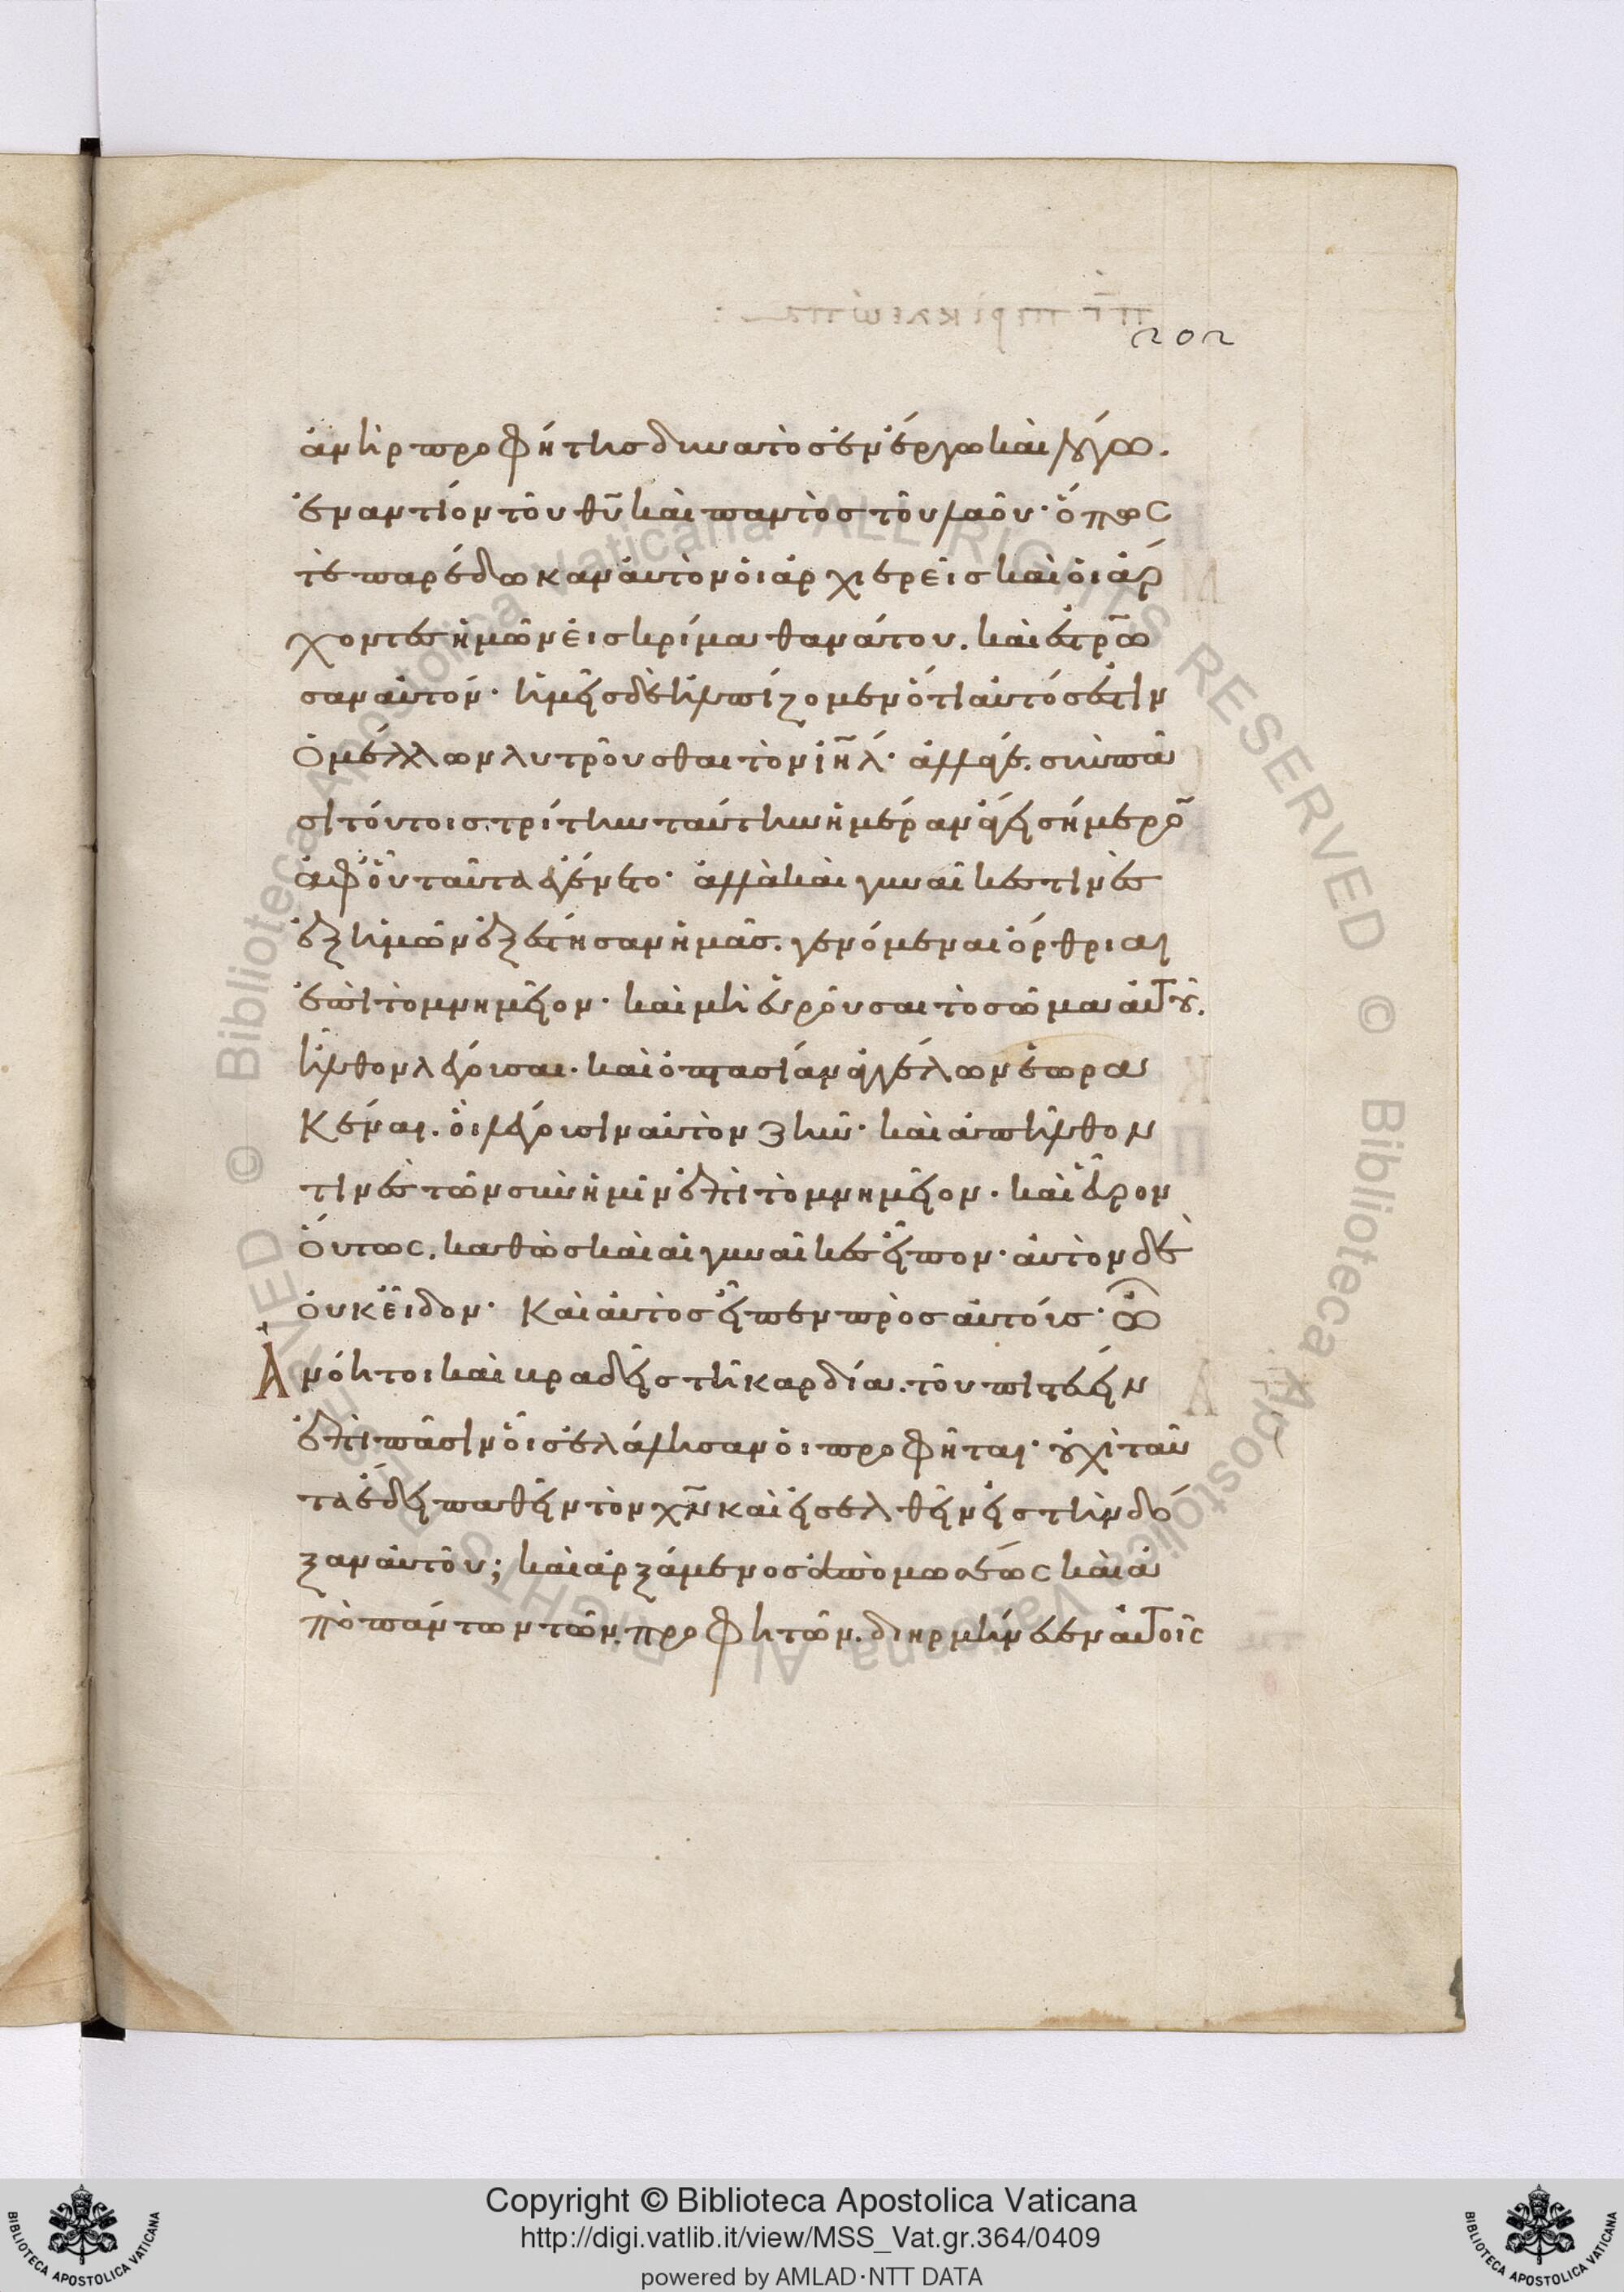 202
ἀνὴρ προφήτης δυνατὸς ἐν ἔργω καὶ λόγω.
ἐναντίον τοῦ θῦ καὶ παντὸς τοῦ λαοῦ· ὅπως
τὲ παρέδωκαν ἀυτὸν ὁι ἀρχιερεῖς καὶ ὁι ἄρ
χοντες ἡμῶν ἐις κρίμα θανάτου. καὶ ἐστρω
σαν ἀυτόν· ἡμεῖς δὲ ἠλπίζομεν ὅτι ἀυτός ἐστιν
ὁ μέλλων λυτροῦσθαι τὸν ιηλ· ἀλλάγε. σὺν πᾶ
σι τόυτοις. τρίτην ταύτην ἡμέραν ἄγει σήμερον
ἀφοῦ ταῦτα ἐγένετο· ἀλλὰ καὶ γυναῖκες τινὲς
ἐξ ἡμῶν ἐξέστησαν ἡμᾶς. γενόμεναι ὄρθριαι
ἐπὶ τὸ μνημεῖον· καὶ μὴ ἑυροῦσαι τὸ σῶμα ἀυτοῦ.
ἦλθον λέγουσαι. καὶ ὀπτασίαν ἀγγέλων ἑωρα
κέναι. ὁὶ λέγουσιν ἀυτὸν ζῆν· καὶ ἀπῆλθον
τινὲς τῶν σὺν ἡμῖν ἐπὶ τὸ μνημεῖον. καὶ εὗρον
ὅυτως. καθὼς καὶ αἱ γυναῖκες εἶπον· ἀυτὸν δὲ
ὀυκ εἶδον· Καὶ ἀυτὸς εἶπεν πρὸς ἀυτόυς· ὦ
Ἀνόητοι καὶ βραδεῖς τῆ καρδία. τοῦ πιστέυειν
ἐπὶ πᾶσιν ὁῖς ἐλάλησαν ὁι προφῆται· ὀυχὶ ταῦ
τα ἔδει παθεῖν τὸν χν καὶ εἰσελθεῖν εἰς τὴν δό
ξαν ἀυτοῦ; καὶ ἀρξάμενος ἀπὸ μωσέως καὶ ἀ
πὸ πάντων τῶν προφητῶν. διηρμήνευεν ἀυτοῖς
Copyright © Biblioteca Apostolica Vaticana
http://digi.vatlib.it/view/MSS_Vat.gr.364/0409
powered by AMLAD·NTT DATA